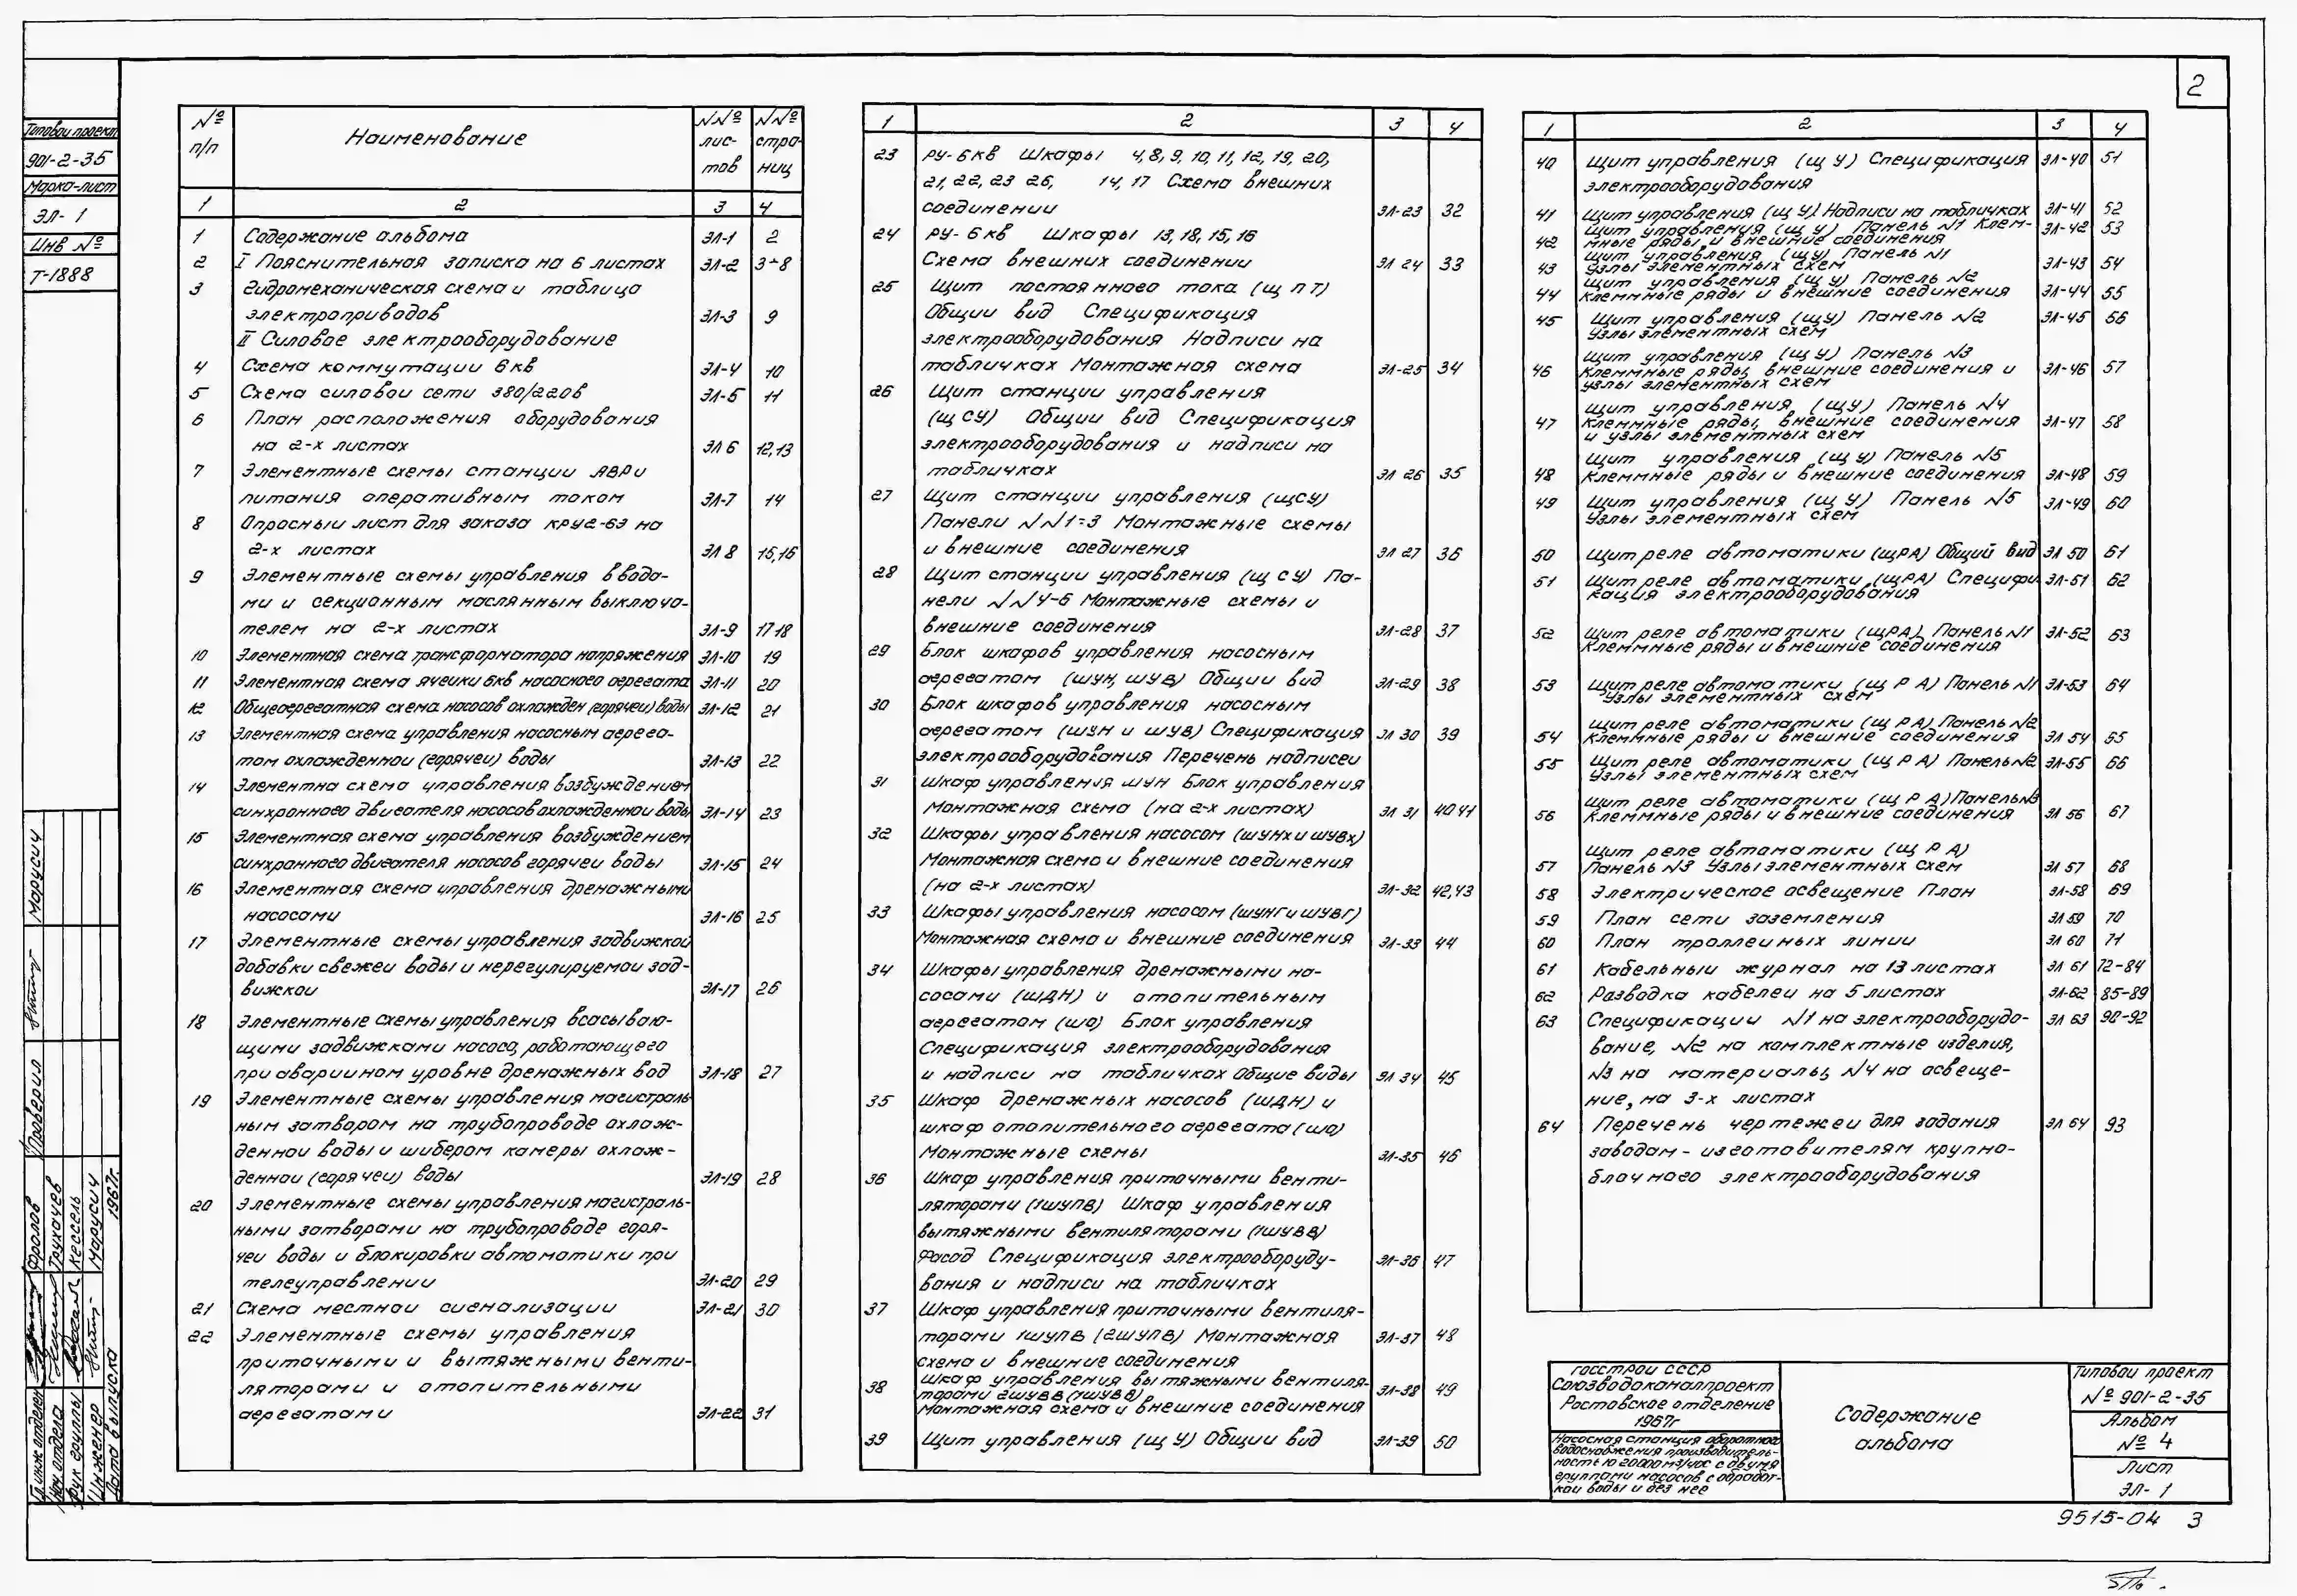 2
Типовой проект
901-2-35
Марка-лист
ЭЛ-1
Инв №
Т-1888
№ п/п
Наименование
№№ лис-тов
№№ стра-ниц
1 2 3 4
1 Содержание альбома ЭЛ-1 2
2 I Пояснительная записка на 6 листах ЭЛ-2 3÷8
3 Гидромеханическая схема и таблица
электроприводов ЭЛ-3 9
II Силовое электрооборудование
4 Схема коммутации 6кв ЭЛ-4 10
5 Схема силовой сети 380/220в ЭЛ-5 11
6 План расположения оборудования
на 2-х листах ЭЛ 6 12,13
7 Элементные схемы станции АВР и
питания оперативным током ЭЛ-7 14
8 Опросный лист для заказа КРУ2-6Э на
2-х листах ЭЛ 8 15,16
9 Элементные схемы управления ввода-
ми и секционным маслянным выключа-
телем на 2-х листах ЭЛ-9 17 18
10 Элементная схема трансформатора напряжения ЭЛ-10 19
11 Элементная схема ячейки 6кв насосного агрегата ЭЛ-11 20
12 Общеагрегатная схема насосов охлажден (горячей) воды ЭЛ-12 21
13 Элементная схема управления насосным агрега-
том охлажденной (горячей) воды ЭЛ-13 22
14 Элементна схема управления возбуждением
синхронного двигателя насосов охлажденной воды ЭЛ-14 23
15 Элементная схема управления возбуждением
синхронного двигателя насосов горячей воды ЭЛ-15 24
16 Элементная схема управления дренажными
насосами ЭЛ-16 25
17 Элементные схемы управления задвижкой
добавки свежей воды и нерегулируемой зад-
вижкой ЭЛ-17 26
18 Элементные схемы управления всасываю-
щими задвижками насоса, работающего
при аварийном уровне дренажных вод ЭЛ-18 27
19 Элементные схемы управления магистраль-
ным затвором на трубопроводе охлаж-
денной воды и шибером камеры охлаж-
денной (горячей) воды ЭЛ-19 28
20 Элементные схемы управления магистраль-
ными затворами на трубопроводе горя-
чей воды и блокировки автоматики при
телеуправлении ЭЛ-20 29
21 Схема местной сигнализации ЭЛ-21 30
22 Элементные схемы управления
приточными и вытяжными венти-
ляторами и отопительными
агрегатами ЭЛ-22 31
1 2 3 4
23 РУ-6кв Шкафы 4,8,9,10,11,12,19,20,
21,22,23 26, 14,17 Схема внешних
соединений ЭЛ-23 32
24 РУ-6кв Шкафы 13,18,15,16
Схема внешних соединений ЭЛ 24 33
25 Щит постоянного тока (ЩПТ)
Общий вид Спецификация
электрооборудования Надписи на
табличках Монтажная схема ЭЛ-25 34
26 Щит станции управления
(ЩСУ) Общий вид Спецификация
электрооборудования и надписи на
табличках ЭЛ 26 35
27 Щит станции управления (ЩСУ)
Панели №№1÷3 Монтажные схемы
и внешние соединения ЭЛ 27 36
28 Щит станции управления (ЩСУ) Па-
нели №№4-6 Монтажные схемы и
внешние соединения ЭЛ-28 37
29 Блок шкафов управления насосным
агрегатом (ШУН, ШУВ) Общий вид ЭЛ-29 38
30 Блок шкафов управления насосным
агрегатом (ШУН и ШУВ) Спецификация ЭЛ 30 39
электрооборудования Перечень надписей
31 Шкаф управления ШУН Блок управления
Монтажная схема (на 2-х листах) ЭЛ 31 40 41
32 Шкафы управления насосом (ШУНх и ШУВх)
Монтажная схема и внешние соединения
(на 2-х листах) ЭЛ-32 42,43
33 Шкафы управления насосом (ШУНГ и ШУВГ)
Монтажная схема и внешние соединения ЭЛ-33 44
34 Шкафы управления дренажными на-
сосами (ШДН) и отопительным
агрегатом (ШО) Блок управления
Спецификация электрооборудования
и надписи на табличках Общие виды ЭЛ 34 45
35 Шкаф дренажных насосов (ШДН) и
шкаф отопительного агрегата (ШО)
Монтажные схемы ЭЛ-35 46
36 Шкаф управления приточными венти-
ляторами (1ШУПВ) Шкаф управления
вытяжными вентиляторами (1ШУВВ)
Фасад Спецификация электрооборудо- ЭЛ-36 47
вания и надписи на табличках
37 Шкаф управления приточными вентиля-
торами 1ШУПВ (2ШУПВ) Монтажная ЭЛ-37 48
схема и внешние соединения
38 Шкаф управления вытяжными вентиля-
торами 2ШУВВ (1ШУВВ) ЭЛ-38 49
Монтажная схема и внешние соединения
39 Щит управления (ЩУ) Общий вид ЭЛ-39 50
1 2 3 4
40 Щит управления (ЩУ) Спецификация ЭЛ-40 51
электрооборудования
41 Щит управления (ЩУ) Надписи на табличках ЭЛ-41 52
Щит управления (ЩУ) Панель №1 Клем- ЭЛ-42 53
42 мные ряды и внешние соединения
Щит управления (ЩУ) Панель №1
43 Узлы элементных схем ЭЛ-43 54
Щит управления (ЩУ) Панель №2
44 Клеммные ряды и внешние соединения ЭЛ-44 55
45 Щит управления (ЩУ) Панель №2 ЭЛ-45 56
Узлы элементных схем
Щит управления (ЩУ) Панель №3
46 Клеммные ряды, внешние соединения и ЭЛ-46 57
узлы элементных схем
Щит управления (ЩУ) Панель №4
47 Клеммные ряды, внешние соединения ЭЛ-47 58
и узлы элементных схем
Щит управления (ЩУ) Панель №5
48 Клеммные ряды и внешние соединения ЭЛ-48 59
49 Щит управления (ЩУ) Панель №5 ЭЛ-49 60
Узлы элементных схем
50 Щит реле автоматики (ЩРА) Общий вид ЭЛ 50 61
51 Щит реле автоматики (ЩРА) Специфи ЭЛ-51 62
кация электрооборудования
52 Щит реле автоматики (ЩРА) Панель №1 ЭЛ-52 63
Клеммные ряды и внешние соединения
53 Щит реле автоматики (ЩРА) Панель №1 ЭЛ-53 64
Узлы элементных схем
Щит реле автоматики (ЩРА) Панель №2
54 Клеммные ряды и внешние соединения ЭЛ 54 65
55 Щит реле автоматики (ЩРА) Панель №2 ЭЛ-55 66
Узлы элементных схем
Щит реле автоматики (ЩРА) Панель №3
56 Клеммные ряды и внешние соединения ЭЛ 56 67
Щит реле автоматики (ЩРА)
57 Панель №3 Узлы элементных схем ЭЛ 57 68
58 Электрическое освещение План ЭЛ-58 69
59 План сети заземления ЭЛ 59 70
60 План троллейных линий ЭЛ 60 71
61 Кабельный журнал на 13 листах ЭЛ 61 72-84
62 Разводка кабелей на 5 листах ЭЛ-62 85-89
63 Спецификации №1 на электрооборудо- ЭЛ 63 90-92
вание, №2 на комплектные изделия,
№3 на материалы, №4 на освеще-
ние, на 3-х листах
64 Перечень чертежей для задания ЭЛ 64 93
заводам-изготовителям крупно-
блочного электрооборудования
Госстрой СССР
Союзводоканалпроект
Ростовское отделение
1967г
Насосная станция оборотного
водоснабжения производитель-
ностью 20000 м3/час с двумя
группами насосов с обработ-
кой воды и без нее
Содержание
альбома
Типовой проект
№ 901-2-35
Альбом
№ 4
Лист
ЭЛ-1
9515-04 3
Марусич
Проверил
Фролов
Трухачев
Кессель
Марусич
1967г.
Гл инж отделен
Нач отдела
Рук группы
Инженер
Дата выпуска